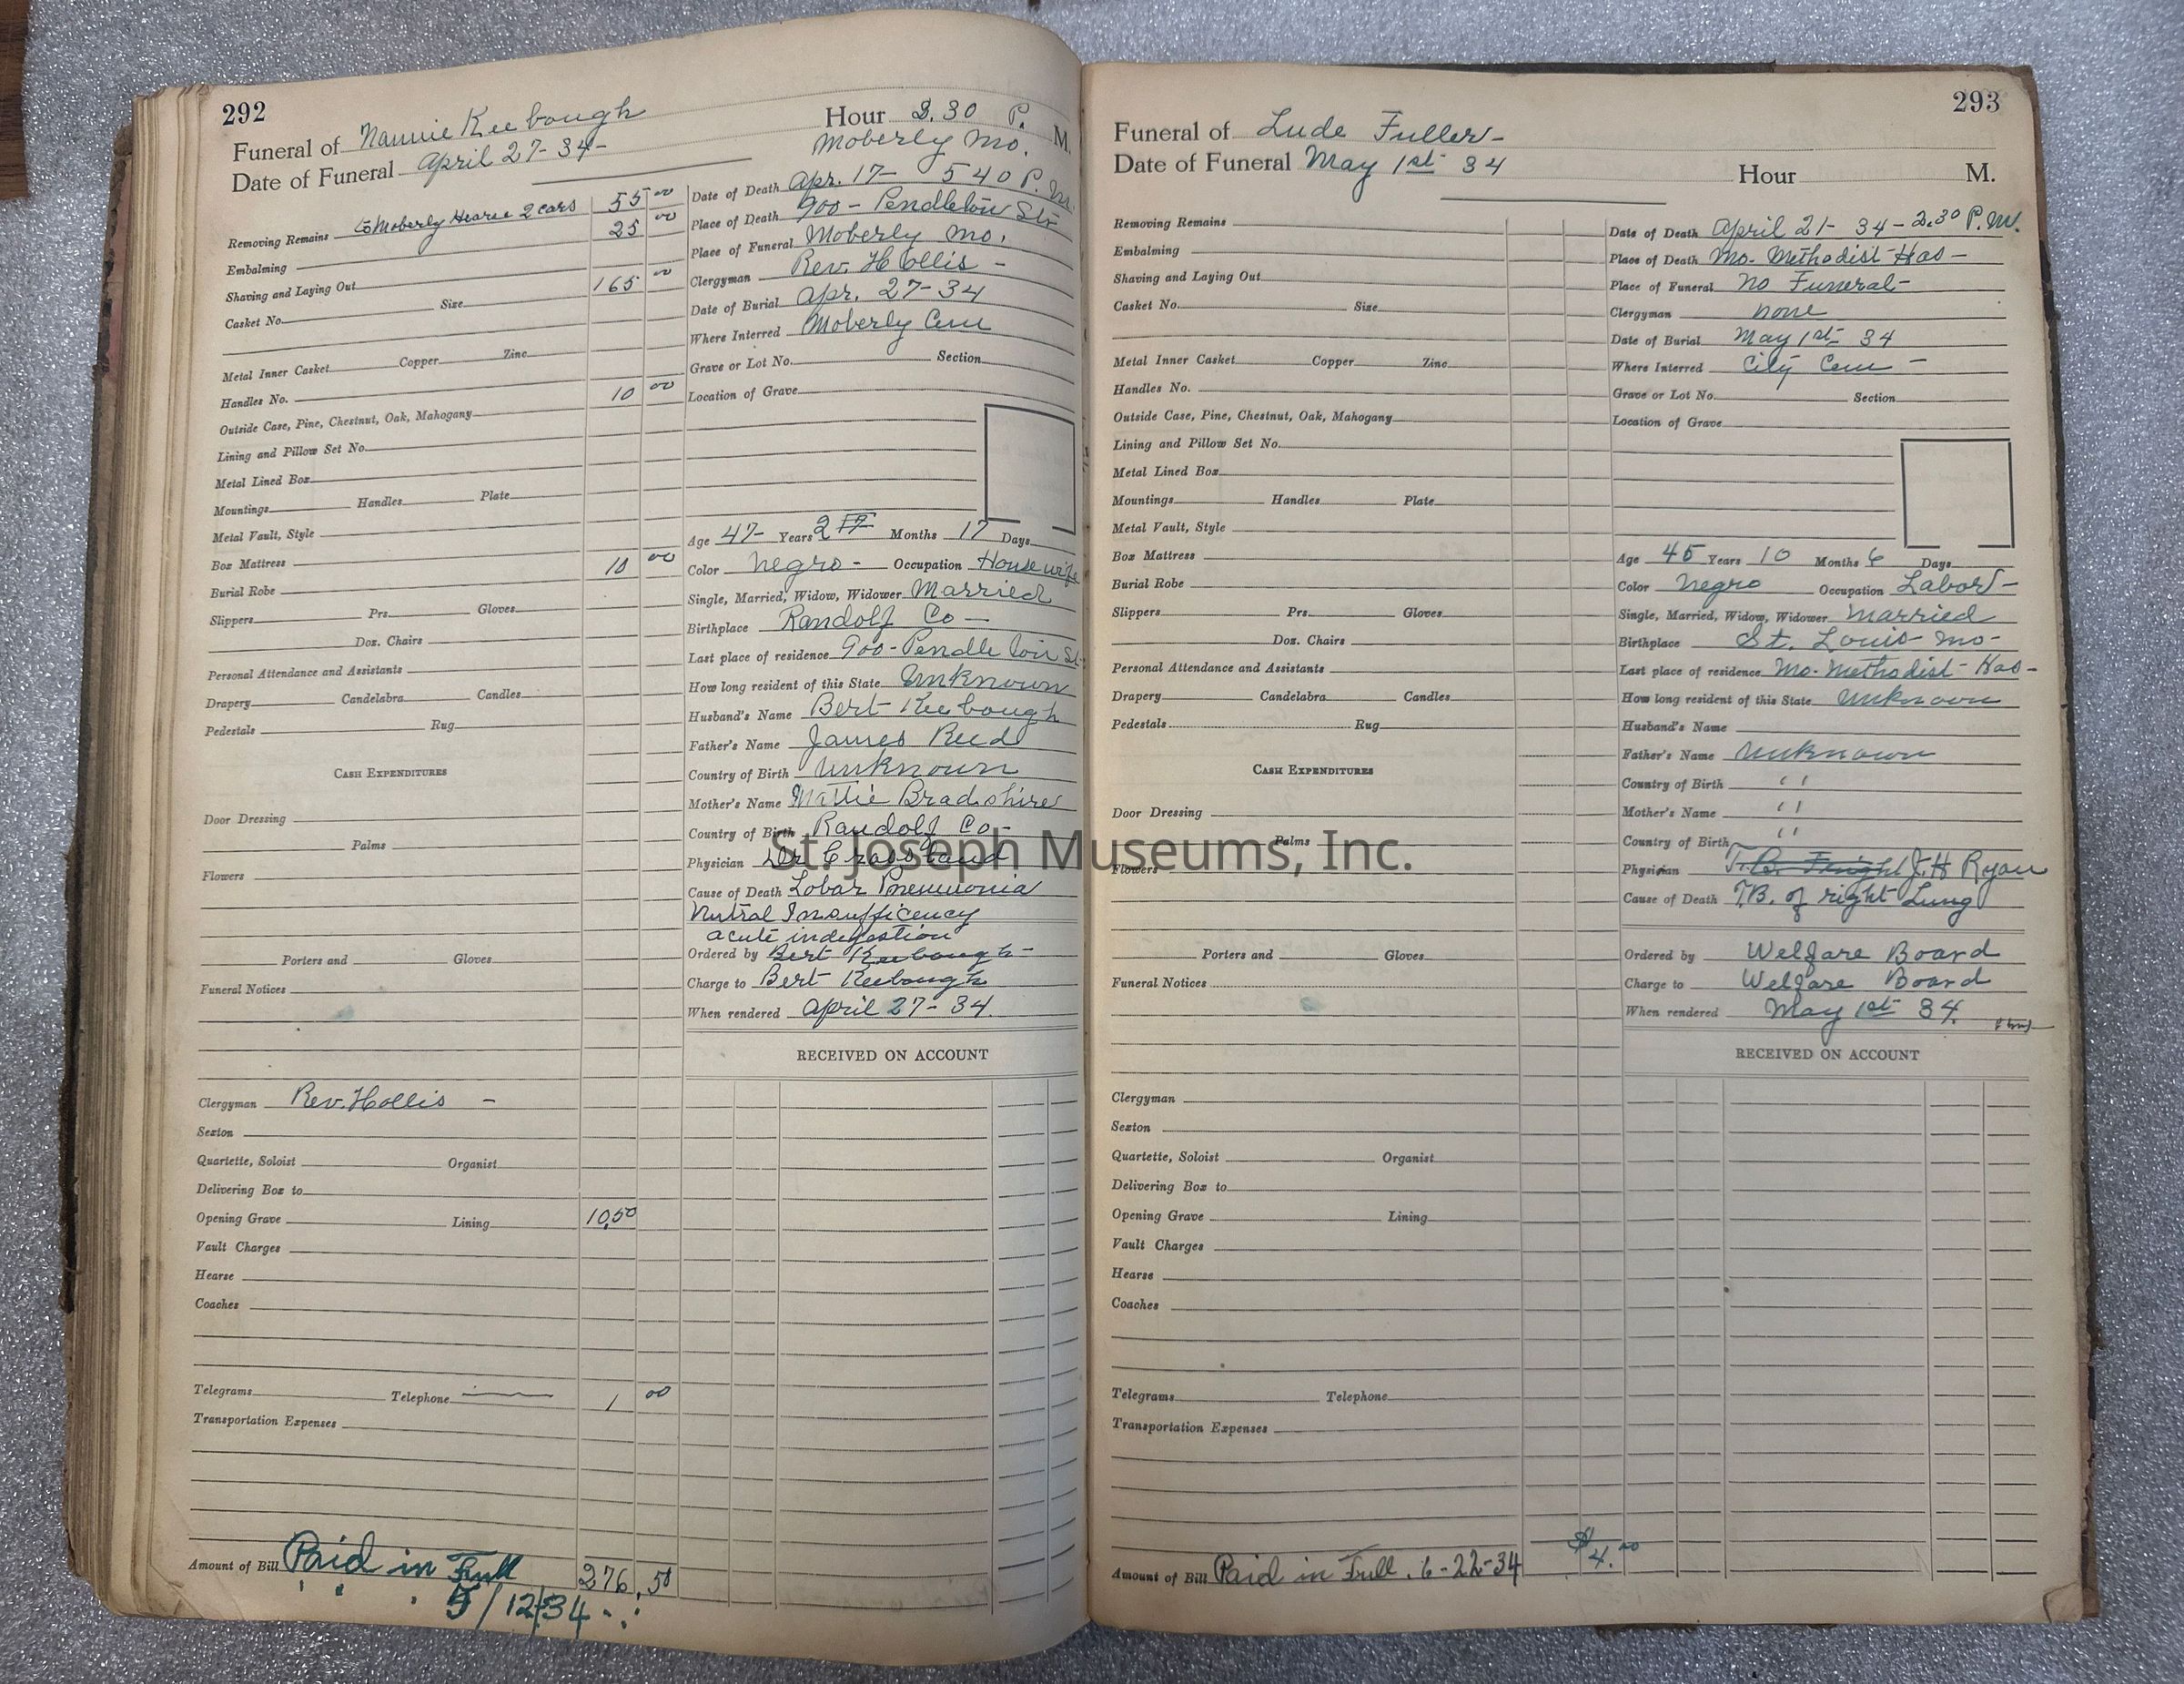 292
Funeral of Nannie Keebough
Hour 2.30 P. M.
Date of Funeral April 27-34-
Moberly Mo.
Removing Remains to Moberly Hearse 2 cars 55 00
Embalming 25 00
Shaving and Laying Out
Casket No. Size 165 00
Metal Inner Casket Copper Zinc
Handles No.
Outside Case, Pine, Chestnut, Oak, Mahogany 10 00
Lining and Pillow Set No.
Metal Lined Box
Mountings Handles Plate
Metal Vault, Style
Box Mattress
Burial Robe 10 00
Slippers Prs. Gloves
Doz. Chairs
Personal Attendance and Assistants
Drapery Candelabra Candles
Pedestals Rug
CASH EXPENDITURES
Door Dressing
Palms
Flowers
Porters and Gloves
Funeral Notices
Clergyman Rev. Hollis -
Sexton
Quartette, Soloist Organist
Delivering Box to
Opening Grave Lining 10.50
Vault Charges
Hearse
Coaches
Telegrams Telephone 1 00
Transportation Expenses
Amount of Bill Paid in Full 276.50
5/12/34
Date of Death Apr. 17- 5 40 P. M.
Place of Death 900 - Pendleton St-
Place of Funeral Moberly Mo.
Clergyman Rev. Hollis -
Date of Burial Apr. 27-34
Where Interred Moberly Cem
Grave or Lot No. Section
Location of Grave
Age 47- Years 2 Months 17 Days
Color Negro - Occupation Housewife
Single, Married, Widow, Widower Married
Birthplace Randolf Co -
Last place of residence 900 - Pendleton St.
How long resident of this State Unknown
Husband's Name Bert Keebough
Father's Name James Reed
Country of Birth Unknown
Mother's Name Mattie Bradshire
Country of Birth Randolf Co-
Physician Dr
Cause of Death Lobar Pneumonia
Insufficency
acute indegestion
Ordered by Bert Keebough -
Charge to Bert Keebough
When rendered April 27-34.
RECEIVED ON ACCOUNT
293
Funeral of Lude Fuller-
Date of Funeral May 1st 34
Hour M.
Removing Remains
Embalming
Shaving and Laying Out
Casket No. Size
Metal Inner Casket Copper Zinc
Handles No.
Outside Case, Pine, Chestnut, Oak, Mahogany
Lining and Pillow Set No.
Metal Lined Box
Mountings Handles Plate
Metal Vault, Style
Box Mattress
Burial Robe
Slippers Prs. Gloves
Doz. Chairs
Personal Attendance and Assistants
Drapery Candelabra Candles
Pedestals Rug
CASH EXPENDITURES
Door Dressing
Palms
Flowers
Porters and Gloves
Funeral Notices
Clergyman
Sexton
Quartette, Soloist Organist
Delivering Box to
Opening Grave Lining
Vault Charges
Hearse
Coaches
Telegrams Telephone
Transportation Expenses
Amount of Bill Paid in Full. 6-22-34 $4.00
Date of Death April 21- 34 - 2.30 P.M.
Place of Death Mo. Methodist Hos -
Place of Funeral No Funeral -
Clergyman none
Date of Burial May 1st- 34
Where Interred City Cem -
Grave or Lot No. Section
Location of Grave
Age 45 Years 10 Months 6 Days
Color Negro Occupation Labor -
Single, Married, Widow, Widower Married
Birthplace St. Louis Mo -
Last place of residence Mo. Methodist - Hos -
How long resident of this State Unknown
Husband's Name
Father's Name Unknown
Country of Birth ''
Mother's Name ''
Country of Birth ''
Physician J. H Ryan
Cause of Death T.B. of right Lung
Ordered by Welfare Board
Charge to Welfare Board
When rendered May 1st 34.
RECEIVED ON ACCOUNT
St. Joseph Museums, Inc.